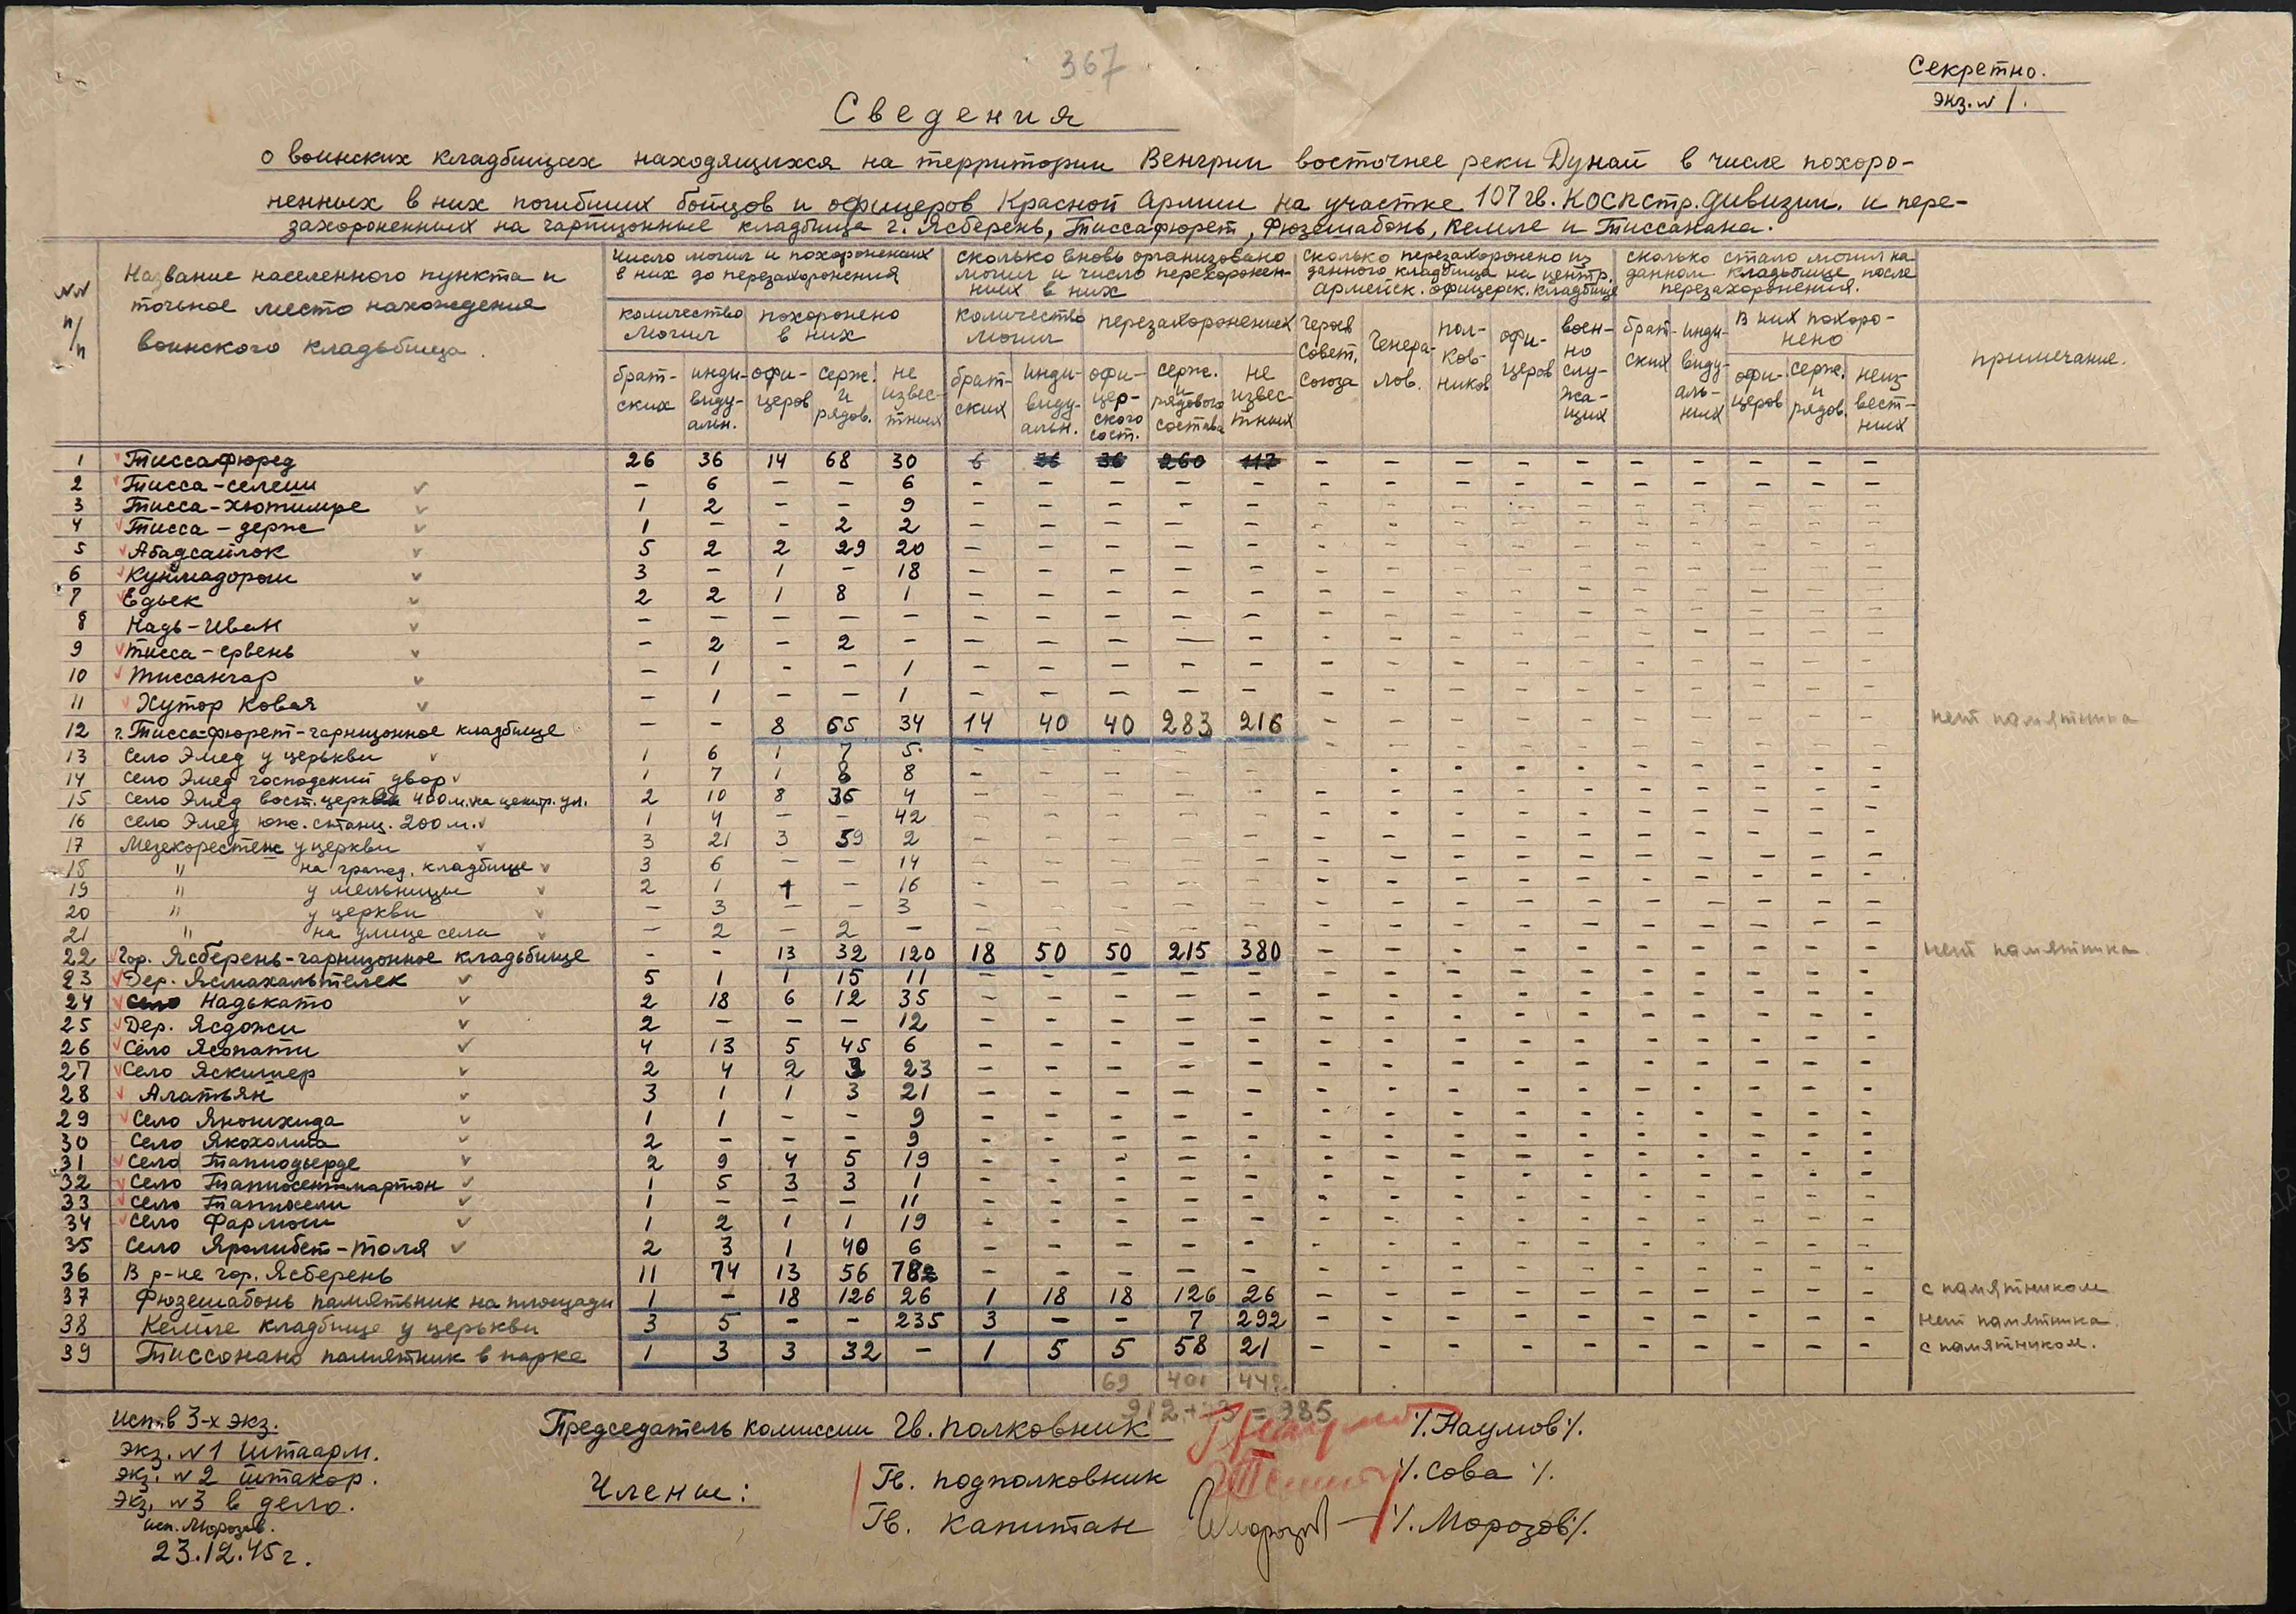 367
Секретно.
Экз. № 1.
Сведения
о воинских кладбищах находящихся на территории Венгрии восточнее реки Дунай в числе похоро-
ненных в них погибших бойцов и офицеров Красной Армии на участке 107 гв. КОСКСтр. дивизии. и пере-
захороненных на гарнизонные кладбища г. Ясберень, Тиссафюрет, Фюзешабонь, Кемле и Тиссанана.
№№ п/п
Название населенного пункта и точное место нахождения воинского кладьбища.
Число могил и похороненных в них до перезахоронения
сколько вновь организовано могил и число перехоронен-ных в них
сколько перезахоронено из данного кладбища на центр. армейск. офицерск. кладбище
сколько стало могил на данном кладьбище после перезахоронения.
примечание.
количество могил
похоронено в них
количество могил
перезахороненных
Героев Совет. Союза
Генера-лов.
пол-ков-ников
офи-церов
воен-но слу-жа-щих
брат-ских
инди-виду-аль-ных
В них похоро-нено
брат-ских
инди-виду-альн.
офи-церов
серж. и рядов.
не извес-тных
брат-ских
инди-виду-альн.
офи-цер-ского сост.
серж. и рядового состава
не извес-тных
офи-церов
серж. и рядов.
неиз-вест-ных
1 Тиссафюред 26 36 14 68 30 6 36 36 260 117 - - - - - - - - - -
2 Тисса-селеши - 6 - - 6 - - - - - - - - - - - - - - -
3 Тисса-хютимре 1 2 - - 9 - - - - - - - - - - - - - - -
4 Тисса-держ 1 - - 2 2 - - - - - - - - - - - - - - -
5 Абадсайлок 5 2 2 29 20 - - - - - - - - - - - - - - -
6 Кунмадораш 3 - 1 - 18 - - - - - - - - - - - - - - -
7 Едьек 2 2 1 8 1 - - - - - - - - - - - - - - -
8 Надь-Иван - - - - - - - - - - - - - - - - - - - -
9 Тисса-ервень - 2 - 2 - - - - - - - - - - - - - - - -
10 Тиссангар - 1 - - 1 - - - - - - - - - - - - - - -
11 Хутор Ковая - 1 - - 1 - - - - - - - - - - - - - - -
12 г. Тисса-фюрет-гарнизонное кладбище - - 8 65 34 14 40 40 283 216 - - - - - - - - - - нет памятника
13 Село Эмед у церькви 1 6 1 7 5 - - - - - - - - - - - - - - -
14 Село Эмед господский двор 1 7 1 8 8 - - - - - - - - - - - - - - -
15 Село Эмед вост. церкви 400 м. на центр. ул. 2 10 8 36 4 - - - - - - - - - - - - - - -
16 Село Эмед юж. станц. 200 м. 1 4 - - 42 - - - - - - - - - - - - - - -
17 Мезекорестеж у церкви 3 21 3 59 2 - - - - - - - - - - - - - - -
18 " на гражд. кладбище 3 6 - - 14 - - - - - - - - - - - - - - -
19 " у мельницы 2 1 1 - 16 - - - - - - - - - - - - - - -
20 " у церкви - 3 - - 3 - - - - - - - - - - - - - - -
21 " на улице села - 2 - 2 - - - - - - - - - - - - - - - -
22 Гор. Ясберень-гарнизонное кладьбище - - 13 32 120 18 50 50 215 380 - - - - - - - - - - нет памятника.
23 Дер. Ясмахальтелек 5 1 1 15 11 - - - - - - - - - - - - - - -
24 Село Надькато 2 18 6 12 35 - - - - - - - - - - - - - - -
25 Дер. Ясдожи 2 - - - 12 - - - - - - - - - - - - - - -
26 Село Ясопати 4 13 5 45 6 - - - - - - - - - - - - - - -
27 Село Яскишер 2 4 2 3 23 - - - - - - - - - - - - - - -
28 Алатьян 3 1 1 3 21 - - - - - - - - - - - - - - -
29 Село Яношхида 1 1 - - 9 - - - - - - - - - - - - - - -
30 Село Якохолма 2 - - - 9 - - - - - - - - - - - - - - -
31 Село Тапиодьерде 2 9 4 5 19 - - - - - - - - - - - - - - -
32 Село Тапиосентмартон 1 5 3 3 1 - - - - - - - - - - - - - - -
33 Село Тапиосели 1 - - - 11 - - - - - - - - - - - - - - -
34 Село Фармош 1 2 1 1 19 - - - - - - - - - - - - - - -
35 Село Яралибет-толя 2 3 1 40 6 - - - - - - - - - - - - - - -
36 В р-не гор. Ясберень 11 74 13 56 782 - - - - - - - - - - - - - - -
37 Фюзешабонь памятьник на площади 1 - 18 126 26 1 18 18 126 26 - - - - - - - - - - с памятником
38 Кемле кладбище у церькви 3 5 - - 235 3 - - 7 292 - - - - - - - - - - Нет памятника.
39 Тиссонано памятник в парке 1 3 3 32 - 1 5 5 58 21 - - - - - - - - - - с памятником.
69 401 442
Исп. в 3-х экз.
Экз. № 1 Штаарм.
Экз. № 2 штакор.
Экз. № 3 в дело.
исп. Морозов.
23.12.45 г.
Председатель комиссии Гв. полковник /. Наумов /.
Члены: Гв. подполковник /. Сова /.
Гв. капитан /. Морозов /.